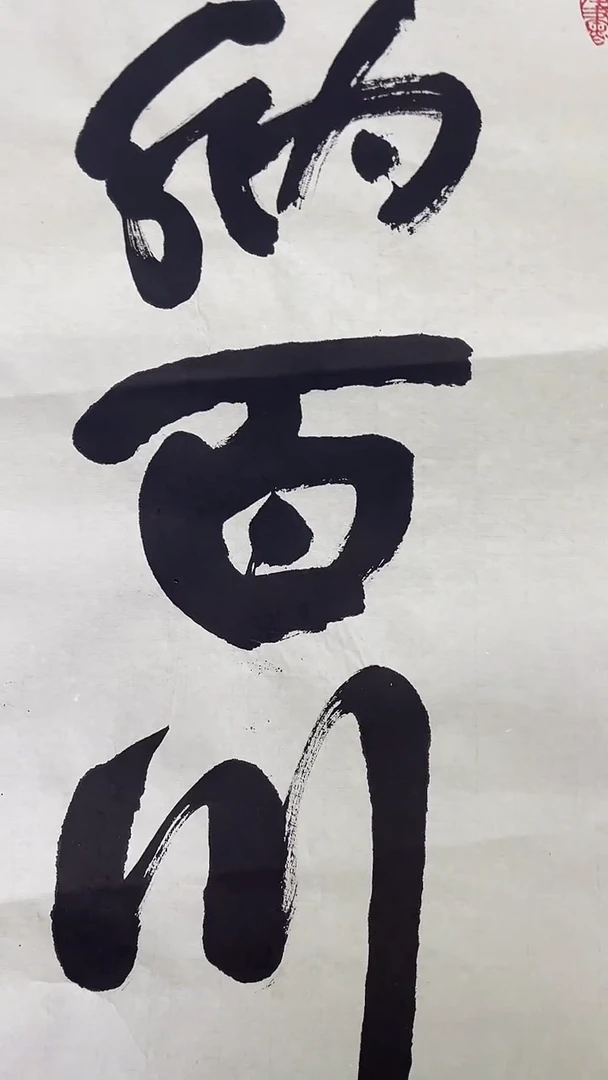 纳百川